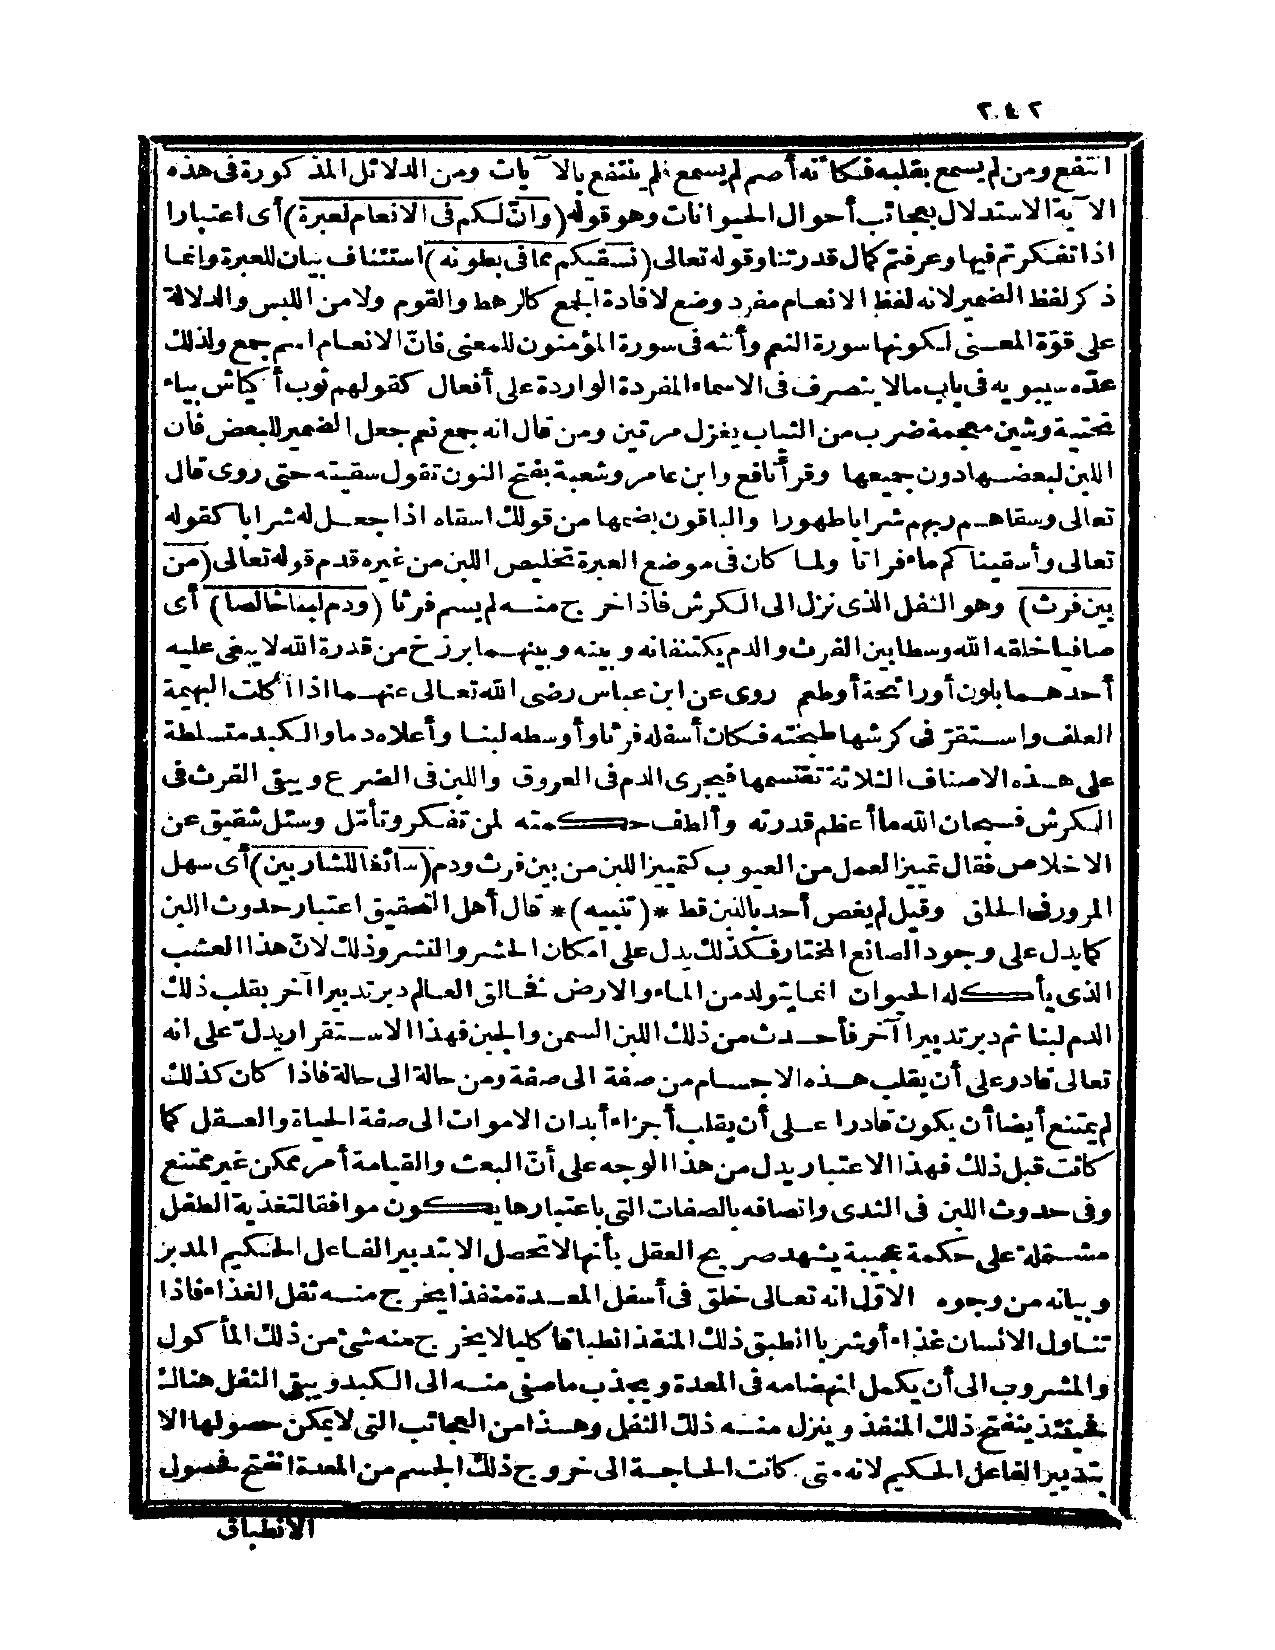 ٢٤٢
انتفع ومن لم يسمع بقلبه فكأنه أصم لم يسمع فلم ينتفع بالآيات ومن الدلائل المذكورة فى هذه
الآية الاستدلال بعجائب أحوال الحيوانات وهو قوله (وانّ لكم فى الانعام لعبرة) أى اعتبارا
اذا تفكرتم فيها وعرفتم كمال قدرتنا وقوله تعالى (نسقيكم مما فى بطونه) استئناف بيان للعبرة وانما
ذكر لفظ الضمير لانه لفظ الانعام مفرد وضع لافادة الجمع كالرهط والقوم ولامن اللبس والدلالة
على قوّة المعنى لكونها سورة النعم وأنثه فى سورة المؤمنون للمعنى فانّ الانعام اسم جمع ولذلك
عدّه سيبويه فى باب مالا ينصرف فى الاسماء المفردة الواردة على أفعال كقولهم ثوب أكاش بياء
تحتية وشين معجمة ضرب من الثياب يغزل مرتين ومن قال انه جمع نعم جعل الضمير للبعض فان
اللبن لبعضها دون جميعها وقرأ نافع وابن عامر وشعبة بفتح النون تقول سقيته حتى روى قال
تعالى وسقاهم ربهم شرابا طهورا والباقون بضمها من قولك اسقاه اذا جعل له شرابا كقوله
تعالى وأسقيناكم ماء فراتا ولما كان فى موضع العبرة تخليص اللبن من غيره قدم قوله تعالى (من
بين فرث) وهو الثفل الذى نزل الى الكرش فاذا خرج منه لم يسم فرثا (ودم لبنا خالصا) أى
صافيا خلقه الله وسطا بين الفرث والدم يكتنفانه وبينه وبينهما برزخ من قدرة الله لا يبغى عليه
أحدهما بلون أو رائحة أو طعم روى عن ابن عباس رضى الله تعالى عنهما اذا أكلت البهيمة
العلف واستقرّ فى كرشها طبخته فكان أسفله فرثا وأوسطه لبنا وأعلاه دما والكبد متسلطة
على هذه الاصناف الثلاثة تقتسمها فيجرى الدم فى العروق واللبن فى الضرع ويبقى الفرث فى
الكرش فسبحان الله ما أعظم قدرته وألطف حكمته لمن تفكر وتأمّل وسئل شقيق عن
الاخلاص فقال تمييز العمل من العيوب كتمييز اللبن من بين فرث ودم (سائغا للشاربين) أى سهل
المرور فى الحلق وقيل لم يغص أحد باللبن قط *(تنبيه)* قال أهل التحقيق اعتبار حدوث اللبن
كما يدل على وجود الصانع المختار فكذلك يدل على امكان الحشر والنشر وذلك لانّ هذا العشب
الذى يأكله الحيوان انما يتولد من الماء والارض فخالق العالم دبر تدبيرا آخر بقلب ذلك
الدم لبنا ثم دبر تدبيرا آخر فأحدث من ذلك اللبن السمن والجبن فهذا الاستقرار يدلّ على انه
تعالى قادر على أن يقلب هذه الاجسام من صفة الى صفة ومن حالة الى حالة فاذا كان كذلك
لم يمتنع أيضا أن يكون قادرا على أن يقلب أجزاء أبدان الاموات الى صفة الحياة والعقل كما
كانت قبل ذلك فهذا الاعتبار يدل من هذا الوجه على أنّ البعث والقيامة أمر ممكن غير ممتنع
وفى حدوث اللبن فى الثدى واتصافه بالصفات التى باعتبارها يكون موافقا لتغذية الطفل
مشتملة على حكمة عجيبة يشهد صريح العقل بأنها لا تحصل الا بتدبير الفاعل الحكيم المدبر
وبيانه من وجوه الاوّل انه تعالى خلق فى أسفل المعدة منفذا يخرج منه ثفل الغذاء فاذا
تناول الانسان غذاء أو شربا انطبق ذلك المنفذ انطباقا كليا لا يخرج منه شئ من ذلك المأكول
والمشروب الى أن يكمل انهضامه فى المعدة ويجذب ما صفى منه الى الكبد ويبقى الثفل هناك
فحينئذ ينفتح ذلك المنفذ وينزل منه ذلك الثفل وهذا من العجائب التى لا يمكن حصولها الا
بتدبير الفاعل الحكيم لانه متى كانت الحاجة الى خروج ذلك الجسم من المعدة انفتح فحصول
الانطباق